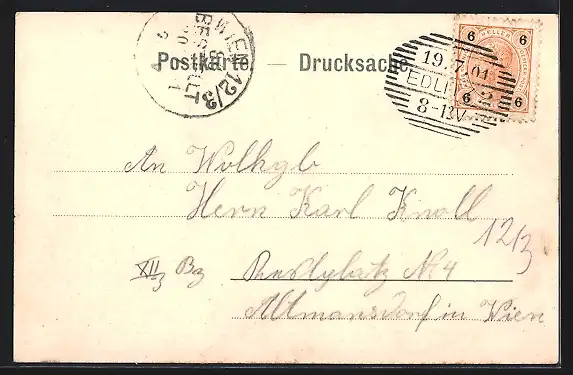 Postkarte — Drucksache
WIEN 12/3
6 HELLER 6
6 6
19.7.01
EDLI
8-12V
An Wolhgb
Herrn Karl Knoll
12/3
XII/3 Bz Restplatz No 4
Altmansdorf in Wien